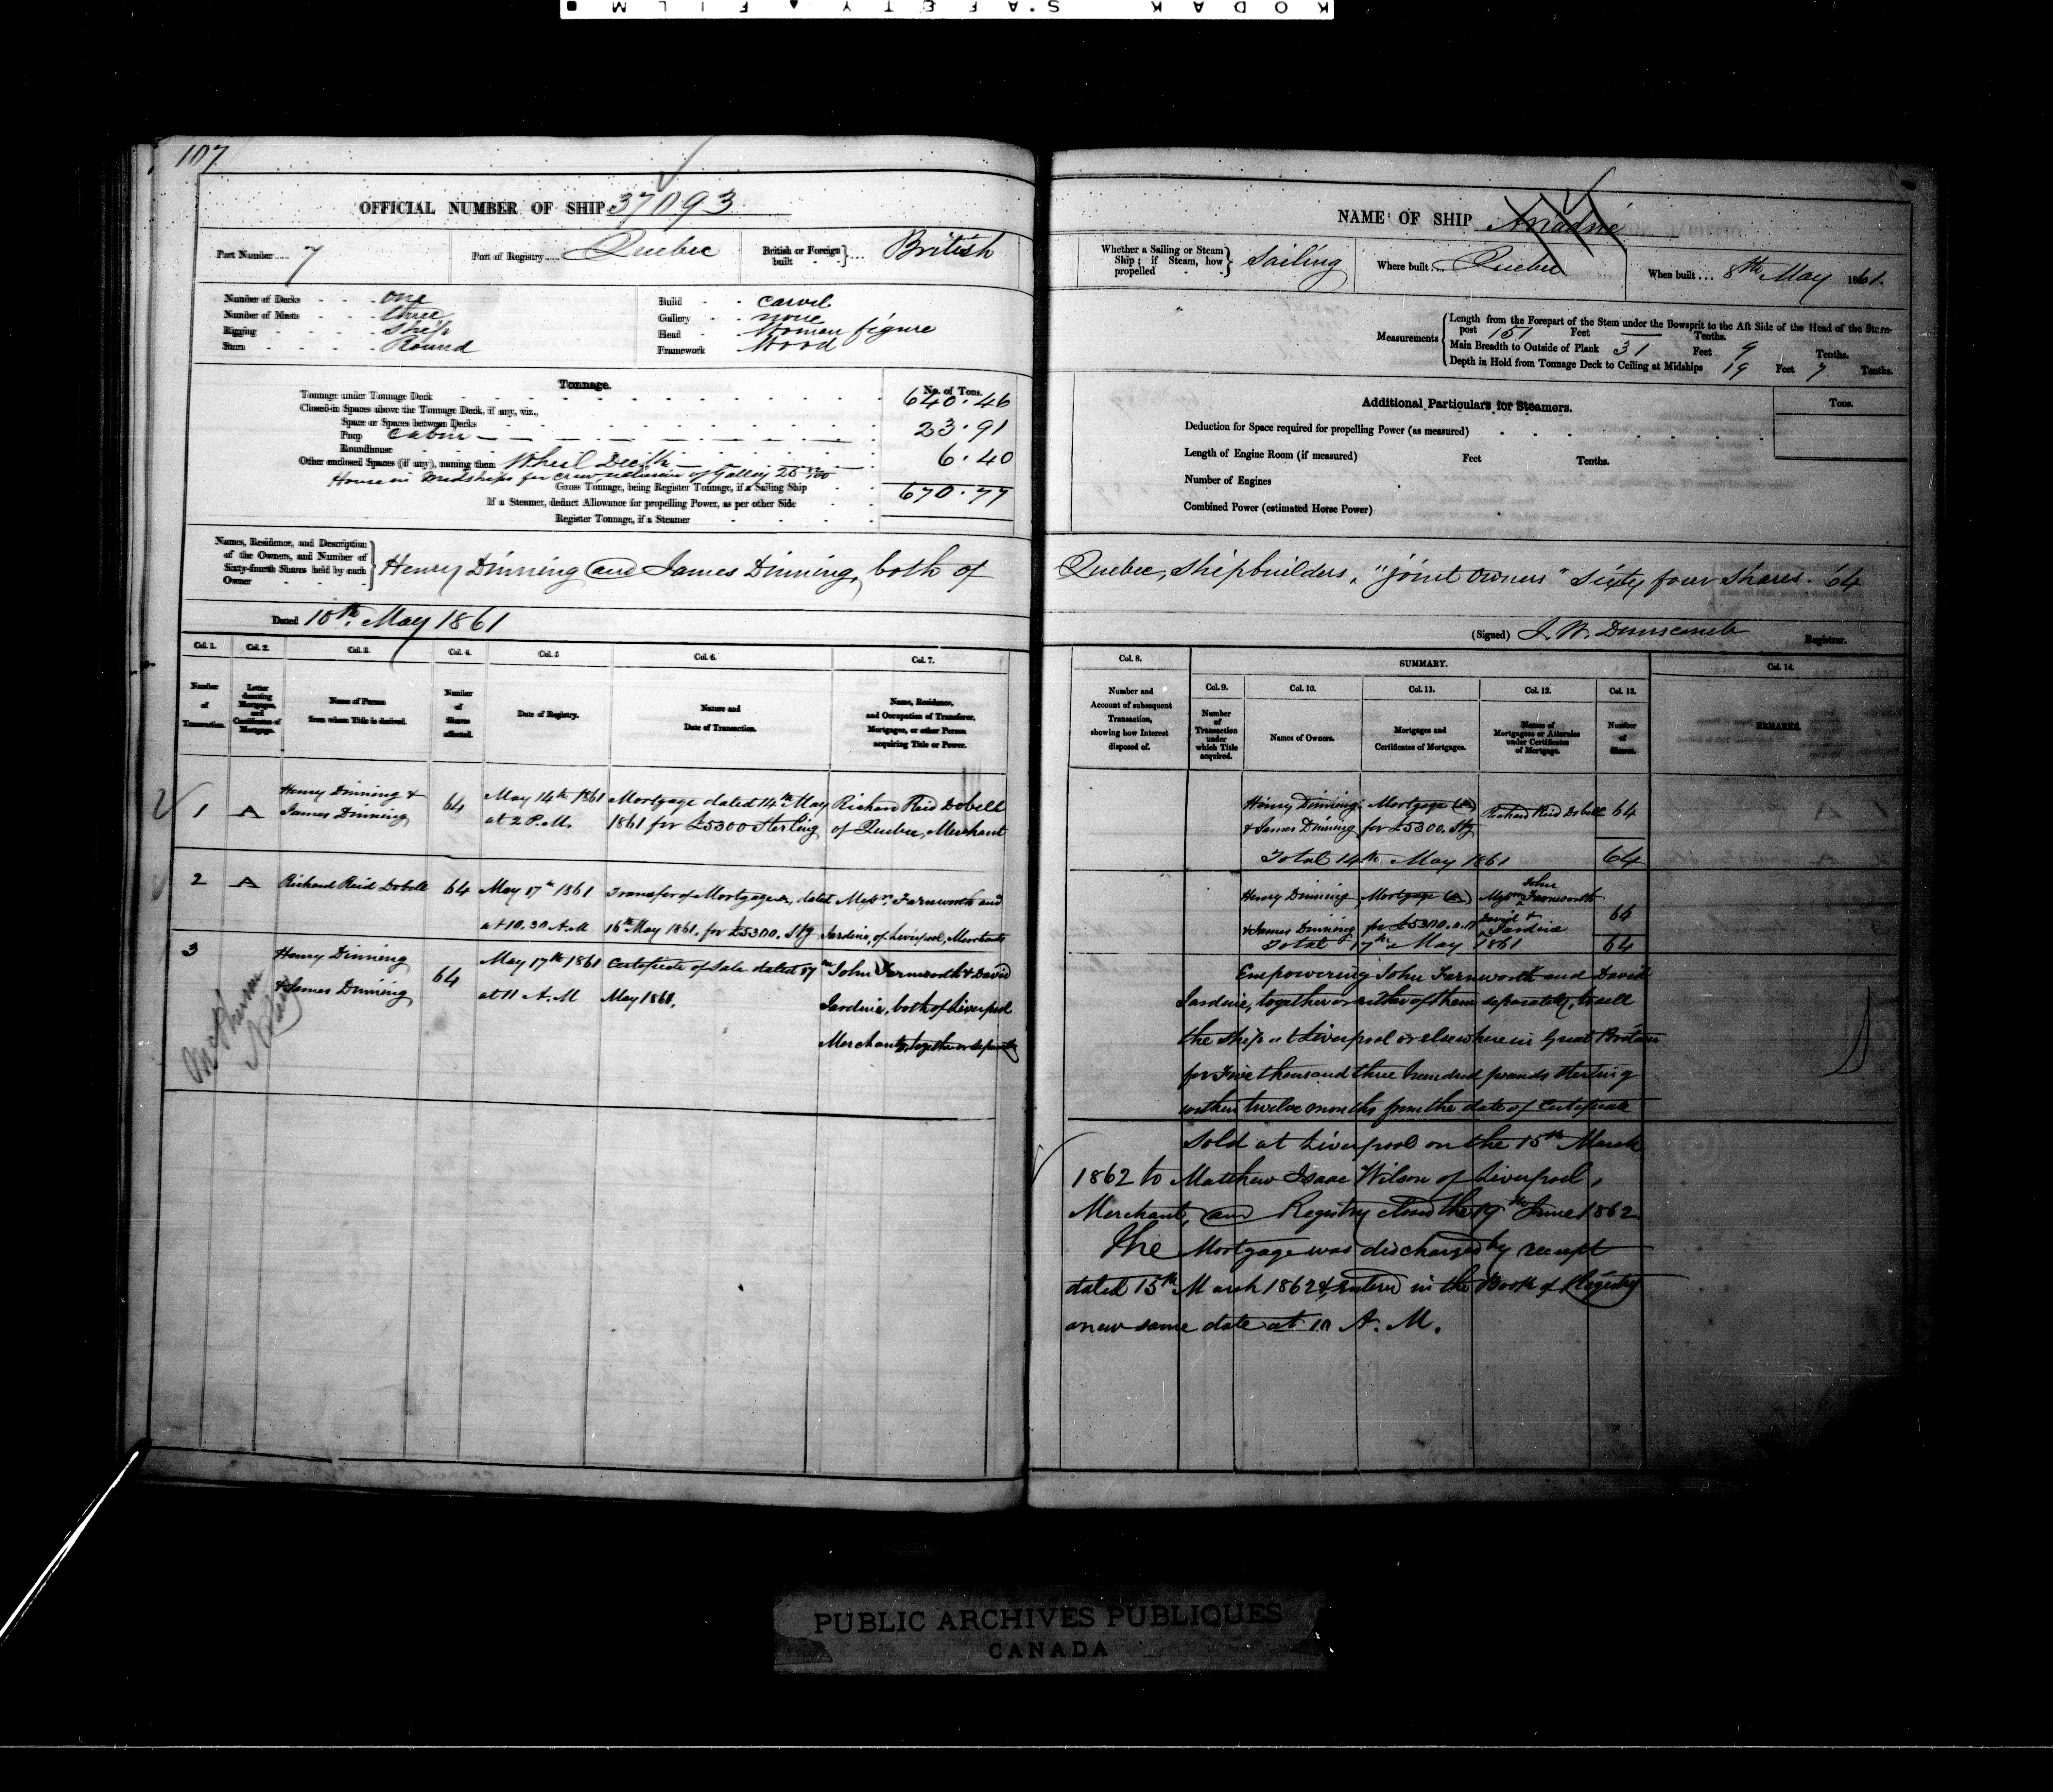 KODAK SAFETY FILM
107
OFFICIAL NUMBER OF SHIP 37093
Port Number 7 Port of Registry Quebec British or Foreign built British
Number of Decks one
Number of Masts three
Rigging Ship
Stern Round
Build Carvel
Gallery none
Head Woman figure
Framework Wood
Tonnage. No. of Tons.
Tonnage under Tonnage Deck 640.46
Closed-in Spaces above the Tonnage Deck, if any, viz.,
Space or Spaces between Decks
Poop Cabin 23.91
Roundhouse
Other enclosed Spaces (if any), naming them Wheel 6.40
House in Midships for Crew, exclusive of Galley 25
Gross Tonnage, being Register Tonnage, if a Sailing Ship 670.77
If a Steamer, deduct Allowance for propelling Power, as per other Side
Register Tonnage, if a Steamer
Names, Residence, and Description of the Owners, and Number of Sixty-fourth Shares held by each Owner
Henry Dinning and James Dinning, both of
Dated 10th May 1861
Col. 1. Col. 2. Col. 3. Col. 4. Col. 5 Col. 6. Col. 7.
Number of Transaction.
Letter denoting Mortgages, and Certificates of Mortgage.
Name of Person from whom Title is derived.
Number of Shares affected.
Date of Registry.
Nature and Date of Transaction.
Name, Residence, and Occupation of Transferee, Mortgagee, or other Person acquiring Title or Power.
1 A Henry Dinning & 64 May 14th 1861 Mortgage dated 14th May Richard Reid Dobell
James Dinning at 2 P.M. 1861 for £5300 Sterling of Quebec, Merchant
2 A Richard Reid Dobell 64 May 17th 1861 Transfer of Mortgage A, dated Messrs. Farnworth and
at 10.30 A.M 16th May 1861. for £5300. Stg Jardine, of Liverpool, Merchants
3 Henry Dinning 64 May 17th 1861 Certificate of Sale dated 17th John Farnworth & David
& James Dinning at 11 A.M May 1861. Jardine, both of Liverpool
Merchants, together or separately
NAME OF SHIP Ariadne
Whether a Sailing or Steam Ship; if Steam, how propelled Sailing Where built Quebec When built 8th May 1861.
Measurements
Length from the Forepart of the Stem under the Bowsprit to the Aft Side of the Head of the Stern-
post 151 Feet Tenths.
Main Breadth to Outside of Plank 31 Feet 9 Tenths.
Depth in Hold from Tonnage Deck to Ceiling at Midships 19 Feet 7 Tenths.
Additional Particulars for Steamers. Tons.
Deduction for Space required for propelling Power (as measured)
Length of Engine Room (if measured) Feet Tenths.
Number of Engines
Combined Power (estimated Horse Power)
Quebec, Shipbuilders, "joint owners" Sixty four Shares. 64
(Signed) J. W. Dunscomb Registrar.
Col. 8. SUMMARY. Col. 14.
Col. 9. Col. 10. Col. 11. Col. 12. Col. 13.
Number and Account of subsequent Transaction, showing how Interest disposed of.
Number of Transaction under which Title acquired.
Names of Owners.
Mortgages and Certificates of Mortgages.
Names of Mortgagees or Attornies under Certificates of Mortgage.
Number of Shares.
REMARKS.
Henry Dinning Mortgage (A) Richard Reid Dobell 64
& James Dinning for £5300. Stg
Total 14th May 1861 64
Henry Dinning Mortgage (A) Messrs John Farnworth
& James Dinning for £5300. David & Jardine 64
Total 17th May 1861 64
Empowering John Farnworth and David
Jardine, together or either of them separately, to sell
the Ship at Liverpool or elsewhere in Great Britain
for Five thousand three hundred pounds Sterling
within twelve months from the date of Certificate
Sold at Liverpool on the 15th March
1862 to Matthew Isaac Wilson of Liverpool,
Merchant, and Registry closed the 19th June 1862.
The Mortgage was discharged by receipt
dated 15th March 1862 & entered in the Book of Registry
anew same date at 10 A. M.
PUBLIC ARCHIVES PUBLIQUES
CANADA